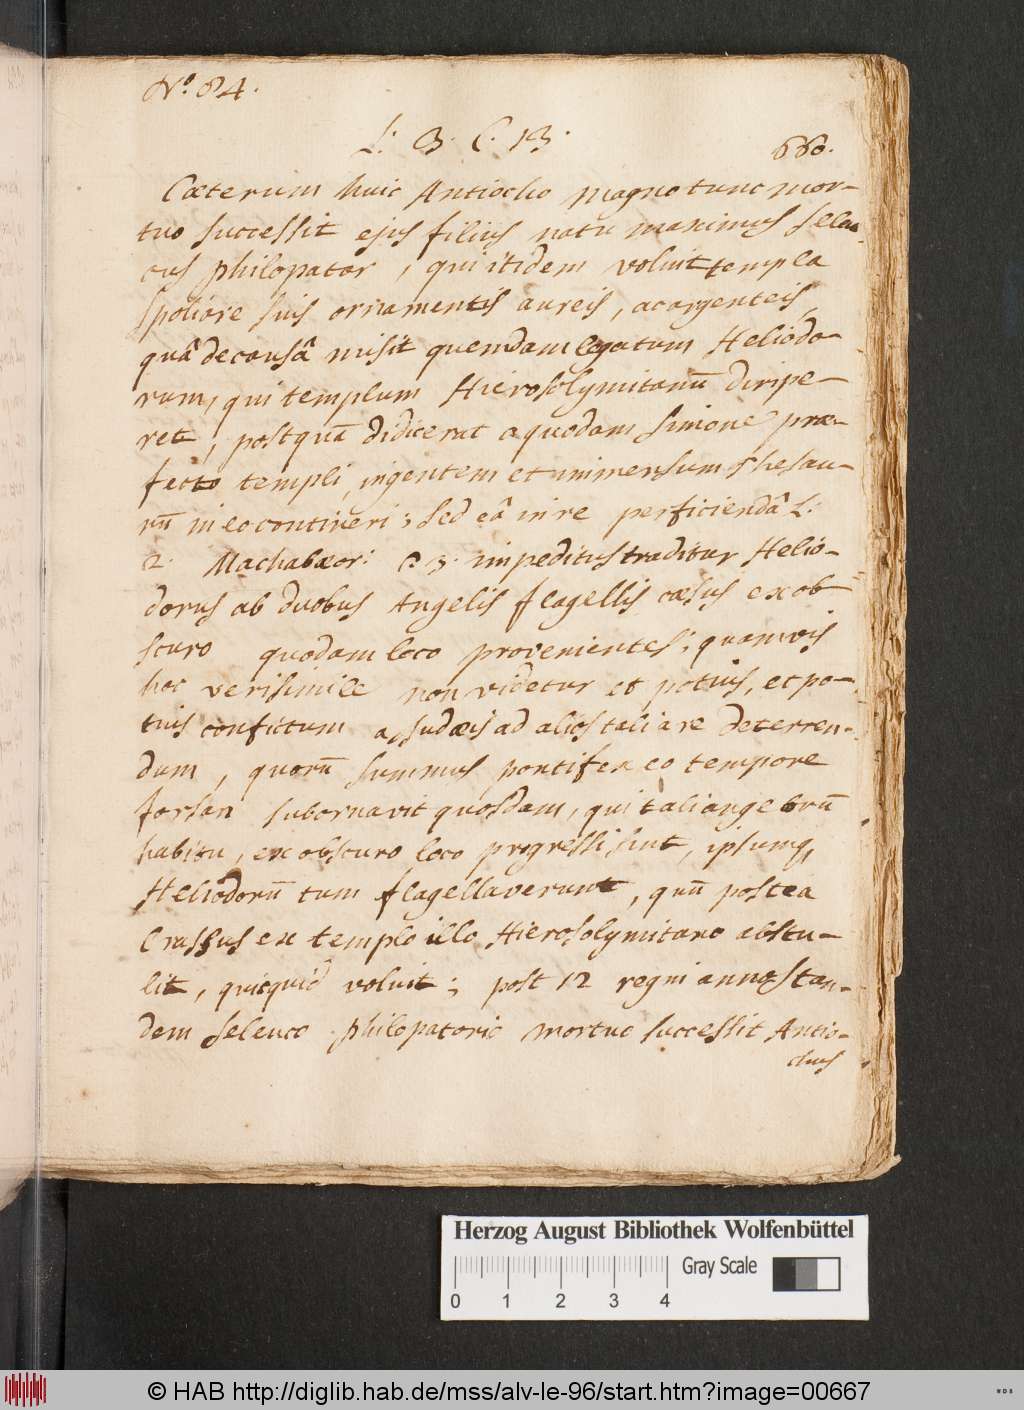 Nº. 84.
L: 3. C. 13.
660.
Cæterum huic Antiocho magno tunc mor-
tuo successit ejus filius natu maximus Seleu-
cus philopator, qui itidem voluit templa
spoliare suis ornamentis aureis, ac argenteis,
quâ de causâ misit quendam legatum Heliodo-
rum, qui templum Hierosolymitanū diripe-
ret, postquā didicerat a quodam Simone præ-
fecto templi, ingentem et immensum thesau-
rū in eo contineri; sed eâ in re perficiendâ L:
2. Machabæor: C 3. impeditus traditur Helio-
dorus ab duobus Angelis flagellis cæsus ex ob
scuro quodam loco provenientes; quamvis
hoc verisimile non videtur et potius, et po-
tius confictum a Judæis ad alios tali a re deterren-
dum, quorū summus pontifex eo tempore
forsan subornavit quosdam, qui tali angelorū
habitu, ex obscuro loco progressi sint, ipsumq
Heliodorū tum flagellaverunt, quū postea
Crassus ex templo illo Hierosolymitano abstu-
lit, quicquid voluit; post 12 regni annos tan-
dem Seleuco philopatorie mortuo successit Antio-
chus
Herzog August Bibliothek Wolfenbüttel
0 1 2 3 4
Gray Scale
© HAB http://diglib.hab.de/mss/alv-le-96/start.htm?image=00667